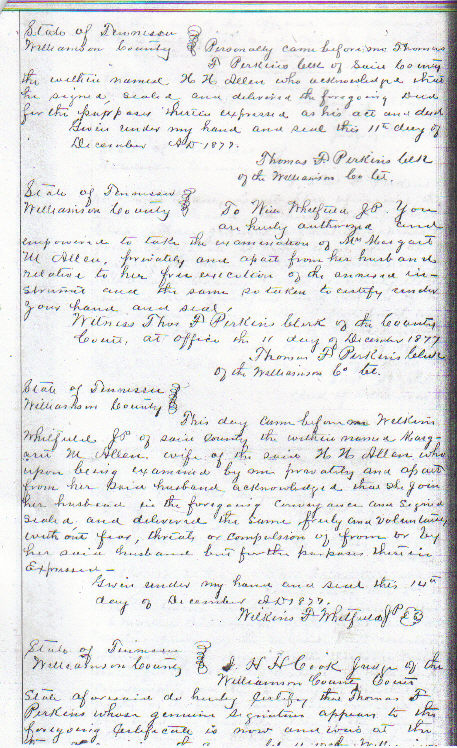 State of Tennessee
Williamson County Personally came before me Thomas
F Perkins Clk of said County
the within named, H H Allen who acknowledged that
he signed, sealed and delivered the foregoing Deed
for the purposes therein expressed as his act and deed
Given under my hand and seal this 11th day of
December AD 1877.
Thomas F. Perkins Clk
of the Williamson Co Ct.
State of Tennessee
Williamson County To Whitfield JP. You
are hereby authorized and
empowered to take the examination of Mrs Margaret
M Allen, privately and apart from her husband
relative to her free execution of the annexed in-
strument and the same so taken to certify under
your hand and seal,
Witness Thos F Perkins Clerk of the County
Court, at office this 11 day of December 1877
Thomas F Perkins Clerk
of the Williamson Co Ct.
State of Tennessee
Williamson County
This day came before me Wilkins
Whitfield JP of said County the within named Marg-
aret M Allen wife of the said H H Allen who
upon being examined by me privately and apart
from her said husband acknowledged that she join
her husband in the foregoing conveyance and signed
sealed, and delivered the same freely and voluntarily
without fear, threats or compulsion of from or by
her said husband but for the purposes therein
Expressed —
Given under my hand and seal this 14th
day of December AD 1877.
Wilkins F Whitfield JP
State of Tennessee
Williamson County I H H Cook Judge of the
Williamson County Court
State aforesaid do hereby certify that Thomas F
Perkins whose genuine signature appears to the
foregoing Certificate is now and was at the